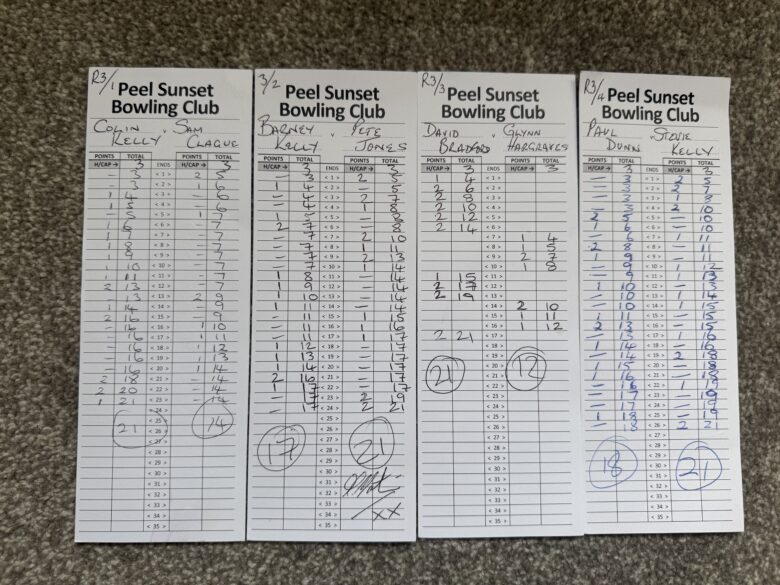 R3/1
Peel Sunset
Bowling Club
COLIN KELLY v SAM CLAGUE
POINTS TOTAL ENDS POINTS TOTAL
H/CAP → 3 H/CAP → 3
– 3 < 1 > 2 5
– 3 < 2 > 1 6
1 4 < 3 > – 6
1 5 < 4 > – 6
– 5 < 5 > 1 7
1 6 < 6 > – 7
1 7 < 7 > – 7
1 8 < 8 > – 7
1 9 < 9 > – 7
1 10 < 10 > – 7
1 11 < 11 > – 7
2 13 < 12 > – 7
– 13 < 13 > 2 9
1 14 < 14 > – 9
2 16 < 15 > – 9
– 16 < 16 > 1 10
– 16 < 17 > 1 11
– 16 < 18 > 1 12
– 16 < 19 > 1 13
– 16 < 20 > 1 14
2 18 < 21 > – 14
2 20 < 22 > – 14
1 21 < 23 > – 14
< 24 >
< 25 >
21 < 26 > 14
< 27 >
< 28 >
< 29 >
< 30 >
< 31 >
< 32 >
< 33 >
< 34 >
< 35 >
3/2
Peel Sunset
Bowling Club
BARNEY KELLY v PETE JONES
POINTS TOTAL ENDS POINTS TOTAL
H/CAP → 3 H/CAP → 3
– 3 < 1 > 2 5
1 4 < 2 > – 5
– 4 < 3 > 2 7
– 4 < 4 > 1 8
1 5 < 5 > – 8
2 7 < 6 > – 8
– 7 < 7 > 2 10
– 7 < 8 > 1 11
– 7 < 9 > 2 13
– 7 < 10 > 1 14
1 8 < 11 > – 14
1 9 < 12 > – 14
1 10 < 13 > – 14
1 11 < 14 > – 14
– 11 < 15 > 1 15
– 11 < 16 > 1 16
– 11 < 17 > 1 17
1 12 < 18 > – 17
1 13 < 19 > – 17
1 14 < 20 > – 17
2 16 < 21 > – 17
1 17 < 22 > – 17
– 17 < 23 > 2 19
– 17 < 24 > 2 21
< 25 >
< 26 >
< 27 >
17 < 28 > 21
< 29 >
< 30 >
< 31 >
< 32 >
< 33 >
< 34 > xx
< 35 >
R3/3
Peel Sunset
Bowling Club
DAVID BRADFORD v GLYNN HARGRAVES
POINTS TOTAL ENDS POINTS TOTAL
H/CAP → 3 H/CAP → 3
1 4 < 1 >
2 6 < 2 >
2 8 < 3 >
2 10 < 4 >
2 12 < 5 >
2 14 < 6 >
< 7 > 1 4
< 8 > 1 5
< 9 > 2 7
< 10 > 1 8
1 15 < 11 >
2 17 < 12 >
2 19 < 13 >
< 14 > 2 10
< 15 > 1 11
< 16 > 1 12
2 21 < 17 >
< 18 >
< 19 >
21 < 20 > 12
< 21 >
< 22 >
< 23 >
< 24 >
< 25 >
< 26 >
< 27 >
< 28 >
< 29 >
< 30 >
< 31 >
< 32 >
< 33 >
< 34 >
< 35 >
R3/4
Peel Sunset
Bowling Club
PAUL DUNN v STOVIE KELLY
POINTS TOTAL ENDS POINTS TOTAL
H/CAP → 3 H/CAP → 3
– 3 < 1 > 2 5
– 3 < 2 > 2 7
– 3 < 3 > 1 8
– 3 < 4 > 2 10
2 5 < 5 > – 10
1 6 < 6 > – 10
– 6 < 7 > 1 11
2 8 < 8 > – 11
1 9 < 9 > – 11
– 9 < 10 > 1 12
– 9 < 11 > 1 13
1 10 < 12 > – 13
– 10 < 13 > 1 14
– 10 < 14 > 1 15
1 11 < 15 > – 15
2 13 < 16 > – 15
– 13 < 17 > 1 16
1 14 < 18 > – 16
– 14 < 19 > 2 18
1 15 < 20 > – 18
1 16 < 21 > – 18
– 16 < 22 > 1 19
1 17 < 23 > – 19
– 17 < 24 > – 19
1 18 < 25 > – 19
– 18 < 26 > 2 21
< 27 >
< 28 >
< 29 >
18 < 30 > 21
< 31 >
< 32 >
< 33 >
< 34 >
< 35 >